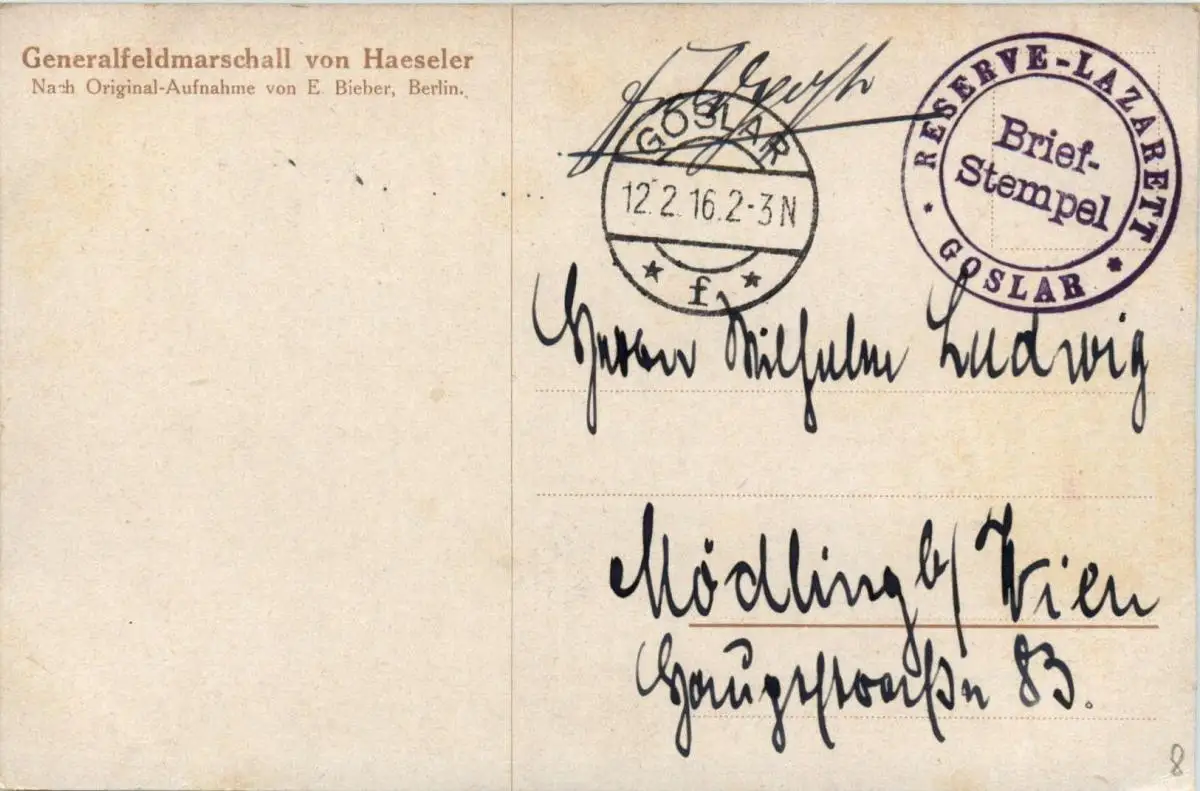 Generalfeldmarschall von Haeseler
Nach Original-Aufnahme von E. Bieber, Berlin.
Feldpost
GOSLAR
12.2.16.2-3N
* f *
RESERVE-LAZARETT
Brief-
Stempel
* GOSLAR *
Herrn Wilhelm Ludwig
Mödling b/ Wien
Hauptstraße 83.
8